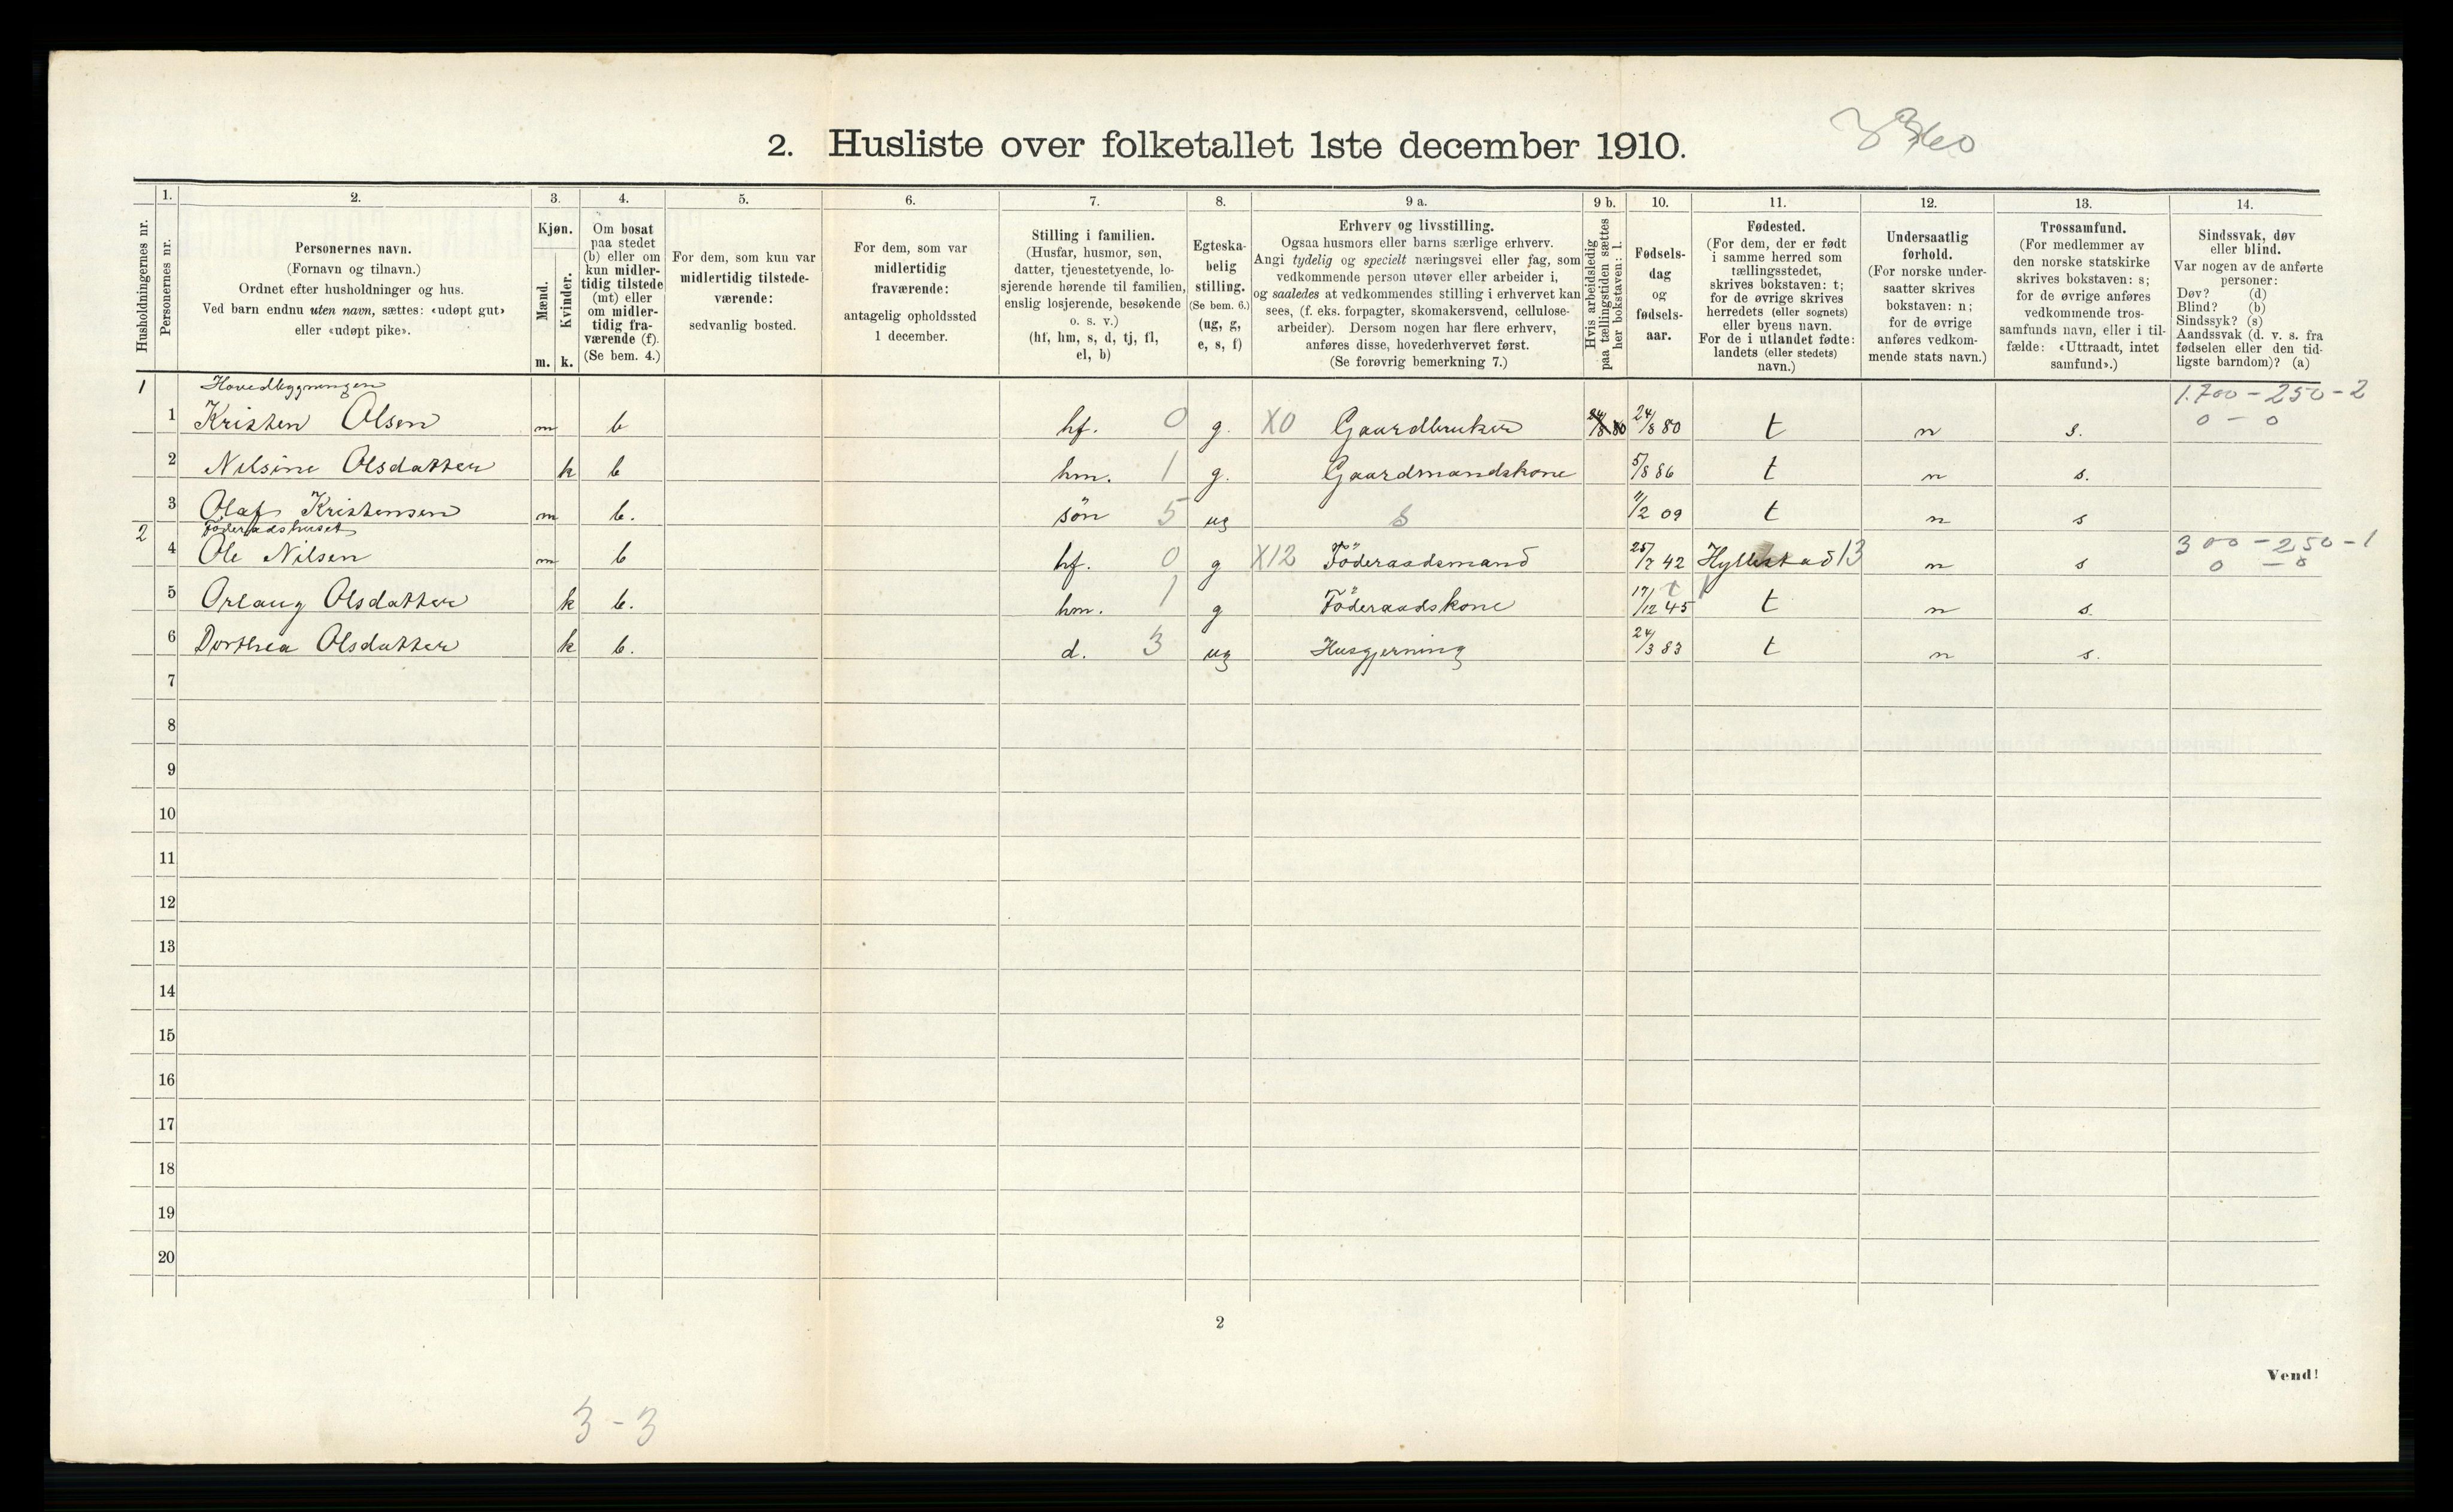 2. Husliste over folketallet 1ste december 1910.
Husholdningernes nr.
1.
Personernes nr.
2.
Personernes navn.
(Fornavn og tilnavn.)
Ordnet efter husholdninger og hus.
Ved barn endnu uten navn, sættes: «udøpt gut»
eller «udøpt pike».
3.
Kjøn.
Mænd.
Kvinder.
m. k.
4.
Om bosat
paa stedet
(b) eller om
kun midler-
tidig tilstede
(mt) eller
om midler-
tidig fra-
værende (f).
(Se bem. 4.)
5.
For dem, som kun var
midlertidig tilstede-
værende:
sedvanlig bosted.
6.
For dem, som var
midlertidig
fraværende:
antagelig opholdssted
1 december.
7.
Stilling i familien.
(Husfar, husmor, søn,
datter, tjenestetyende, lo-
sjerende hørende til familien,
enslig losjerende, besøkende
o. s. v.)
(hf, hm, s, d, tj, fl,
el, b)
8.
Egteska-
belig
stilling.
(Se bem. 6.)
(ug, g,
e, s, f)
9 a.
Erhverv og livsstilling.
Ogsaa husmors eller barns særlige erhverv.
Angi tydelig og specielt næringsvei eller fag, som
vedkommende person utøver eller arbeider i,
og saaledes at vedkommendes stilling i erhvervet kan
sees, (f. eks. forpagter, skomakersvend, cellulose-
arbeider). Dersom nogen har flere erhverv,
anføres disse, hovederhvervet først.
(Se forøvrig bemerkning 7.)
9 b.
Hvis arbeidsledig
paa tællingstiden sættes
her bokstaven: l.
10.
Fødsels-
dag
og
fødsels-
aar.
11.
Fødested.
(For dem, der er født
i samme herred som
tællingsstedet,
skrives bokstaven: t;
for de øvrige skrives
herredets (eller sognets)
eller byens navn.
For de i utlandet fødte:
landets (eller stedets)
navn.)
12.
Undersaatlig
forhold.
(For norske under-
saatter skrives
bokstaven: n;
for de øvrige
anføres vedkom-
mende stats navn.)
13.
Trossamfund.
(For medlemmer av
den norske statskirke
skrives bokstaven: s;
for de øvrige anføres
vedkommende tros-
samfunds navn, eller i til-
fælde: «Uttraadt, intet
samfund».)
14.
Sindssvak, døv
eller blind.
Var nogen av de anførte
personer:
Døv? (d)
Blind? (b)
Sindssyk? (s)
Aandssvak (d. v. s. fra
fødselen eller den tid-
ligste barndom)? (a)
1 Hovedbygningen 1.700 - 250 - 2
1 Kristen Olsen m b hf. 0 g. X0 Gaardbruker 24/8 80 24/8 80 t n s. 0 - 0
2 Nilsine Olsdatter k b hm. 1 g. Gaardmandskone 5/8 86 t n s.
3 Olaf Kristensen m b. søn 5 ug s 11/2 09 t n s
2 Föderaadshuset 300 - 250 - 1
4 Ole Nilsen m b hf. 0 g X12 Föderaadsmand 25/7 42 Hyllestad 13 n s 0 - 0
5 Orlaug Olsdatter k b. hm. 1 g Föderaadskone 17/12 45 t n s.
6 Dorthea Olsdatter k b. d. 3 ug Husgjerning 24/3 83 t n s.
7
8
9
10
11
12
13
14
15
16
17
18
19
20
2
Vend!
3 - 3